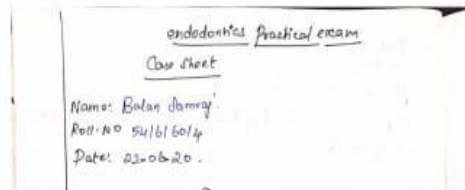 endodontics Practical exam
Case sheet
Name: Balan
Roll.No 54/6/60/4
Date: 22-06-20.